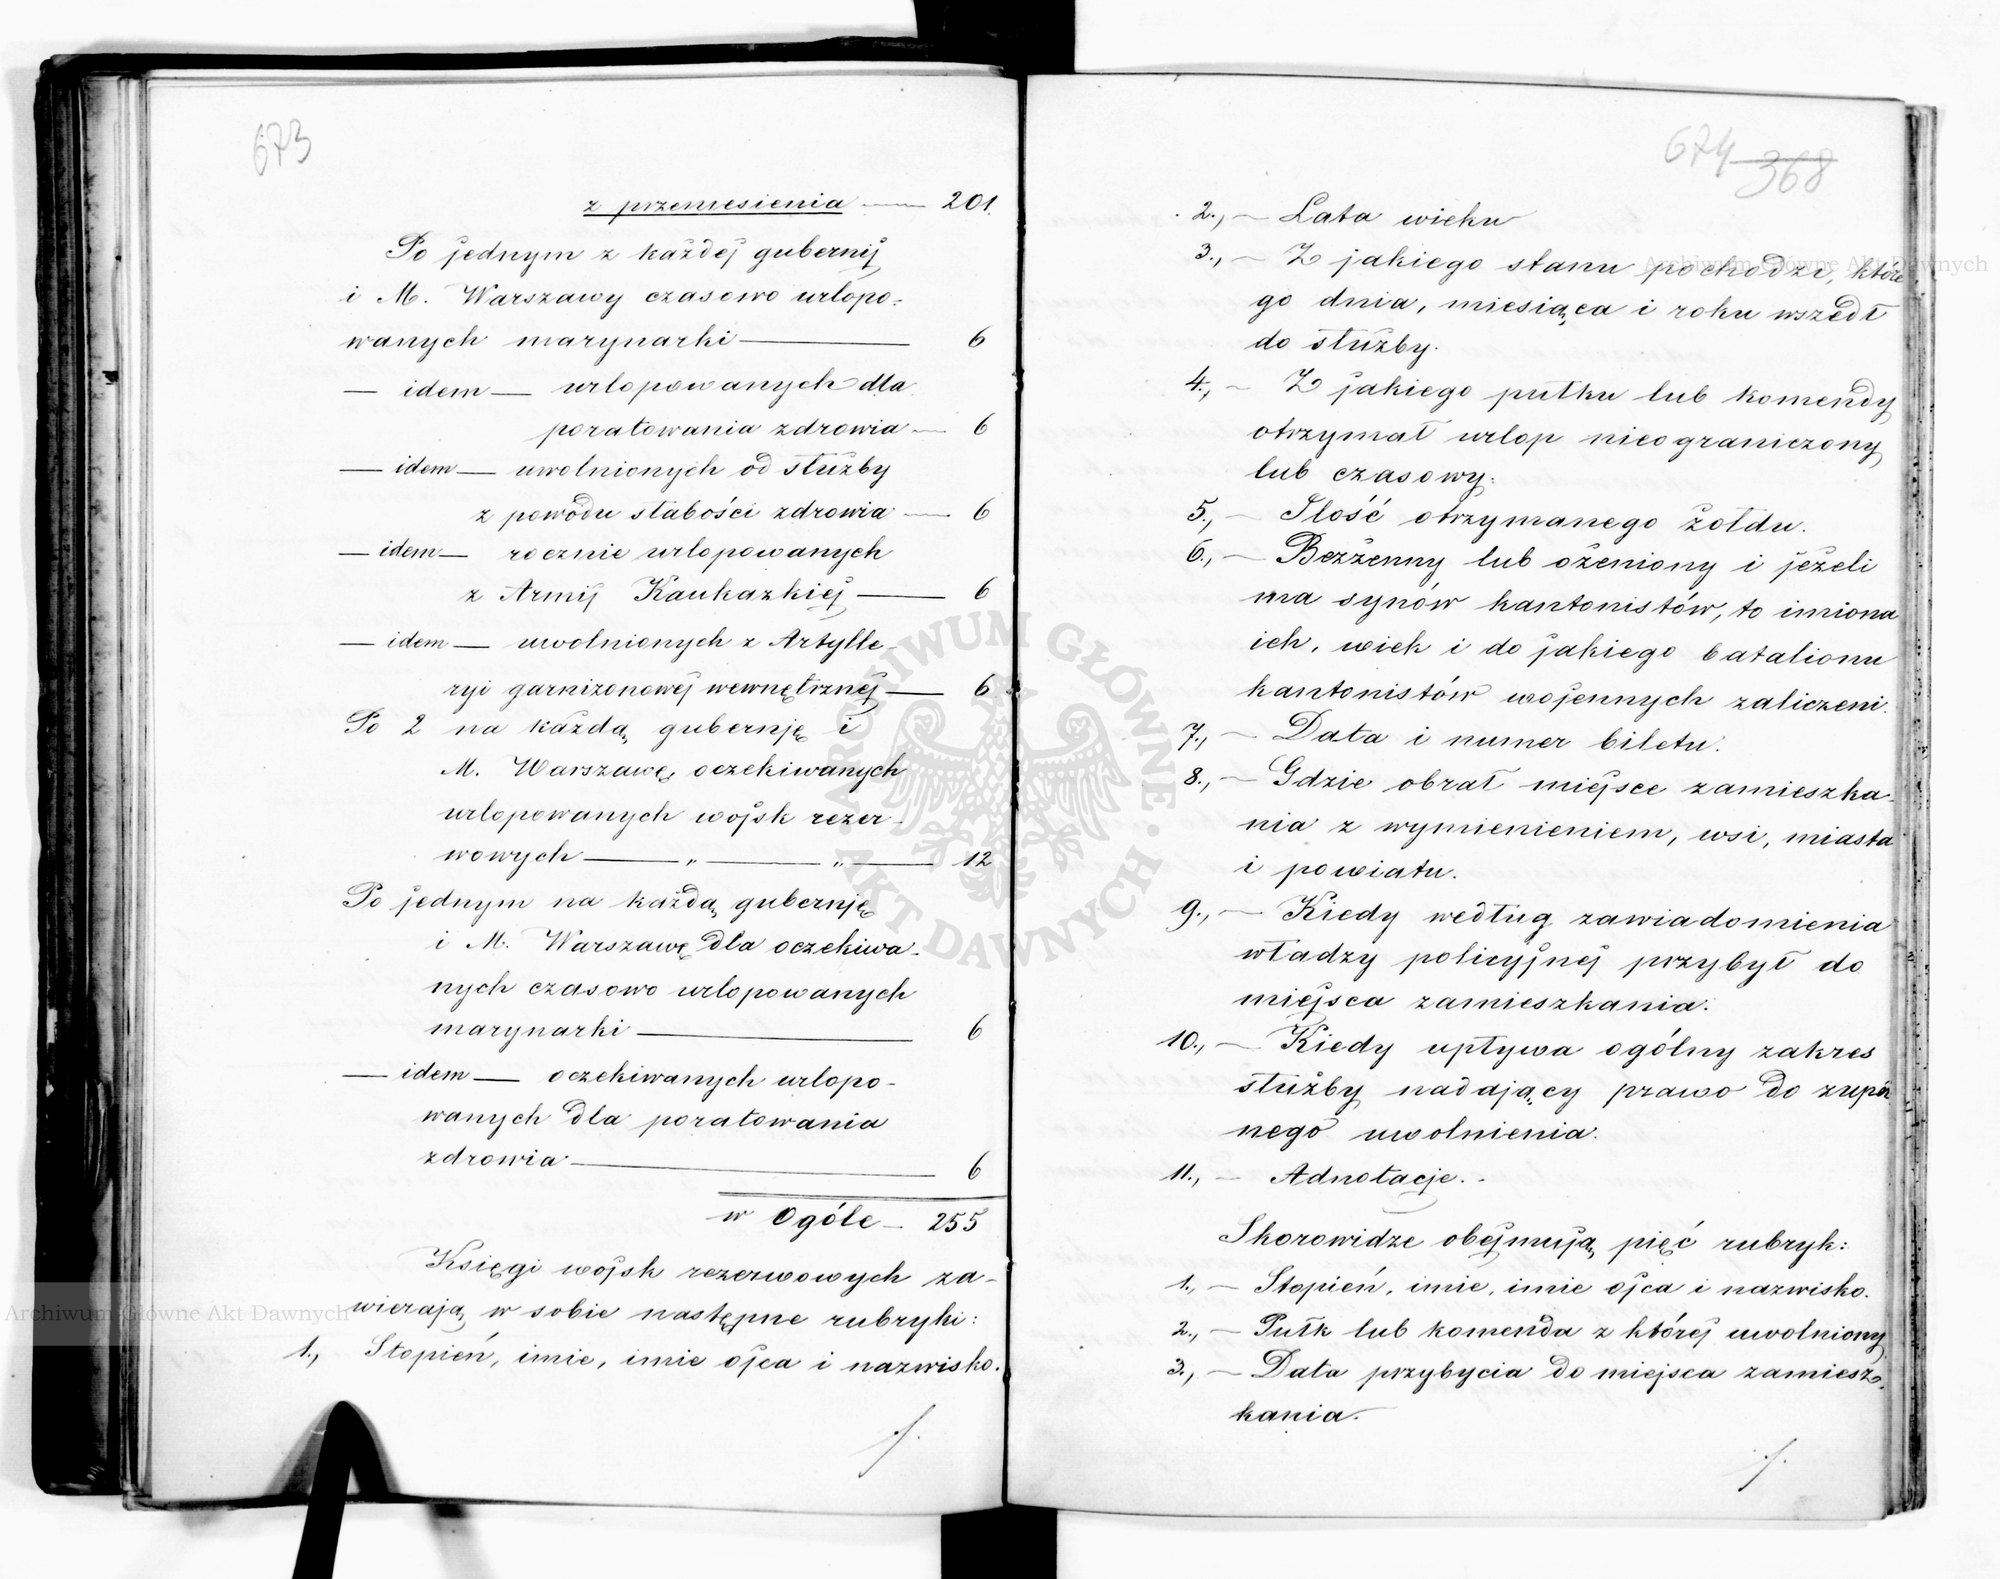 673
z przeniesienia — 201.
Po jednym z każdej gubernij
i M. Warszawy czasowo urlopo-
wanych marynarki — 6
— idem — urlopowanych dla
poratowania zdrowia — 6
— idem — uwolnionych od służby
z powodu słabości zdrowia — 6
— idem — rocznie urlopowanych
z Armij Kaukazkiej — 6
— idem — uwolnionych z Artylle-
ryi garnizonowej wewnętrznej — 6
Po 2 na każdą gubernję i
M. Warszawę, oczekiwanych
urlopowanych wojsk rezer-
wowych — „ — „ — 12
Po jednym na każdą gubernję
i M. Warszawę dla oczekiwa-
nych czasowo urlopowanych
marynarki — 6
— idem — oczekiwanych urlopo-
wanych dla poratowania
zdrowia — 6
w Ogóle — 255
Księgi wojsk rezerwowych za-
wierają w sobie następne rubryki:
1., Stopień, imie, imie ojca i nazwisko.
674 368
2., — Lata wieku
3., — Z jakiego stanu pochodzi, które
go dnia, miesiąca i roku wszedł
do służby.
4., — Z jakiego pułku lub komendy
otrzymał urlop nieograniczony
lub czasowy.
5., — Ilość otrzymanego żołdu.
6., — Bezżenny lub ożeniony i jeżeli
ma synów kantonistów, to imiona
ich, wiek i do jakiego batalionu
kantonistów wojennych zaliczeni.
7., — Data i numer biletu.
8., — Gdzie obrał miejsce zamieszka-
nia z wymienieniem, wsi, miasta
i powiatu.
9., — Kiedy według zawiadomienia
władzy policyjnej przybył do
miejsca zamieszkania.
10., — Kiedy upływa ogólny zakres
służby nadający prawo do zupeł
nego uwolnienia.
11., — Adnotacje.
Skorowidze obejmują pięć rubryk:
1., — Stopień, imie, imie ojca i nazwisko.
2., — Pułk lub komenda z której uwolniony.
3., — Data przybycia do miejsca zamiesz-
kania.
ARCHIWUM GŁÓWNE · AKT DAWNYCH
Archiwum Główne Akt Dawnych
Archiwum Główne Akt Dawnych